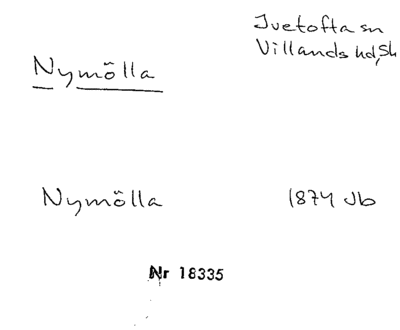 Ivetofta sn
Villands hd, Sk
Nymölla
Nymölla 1874 Jb
Nr 18335